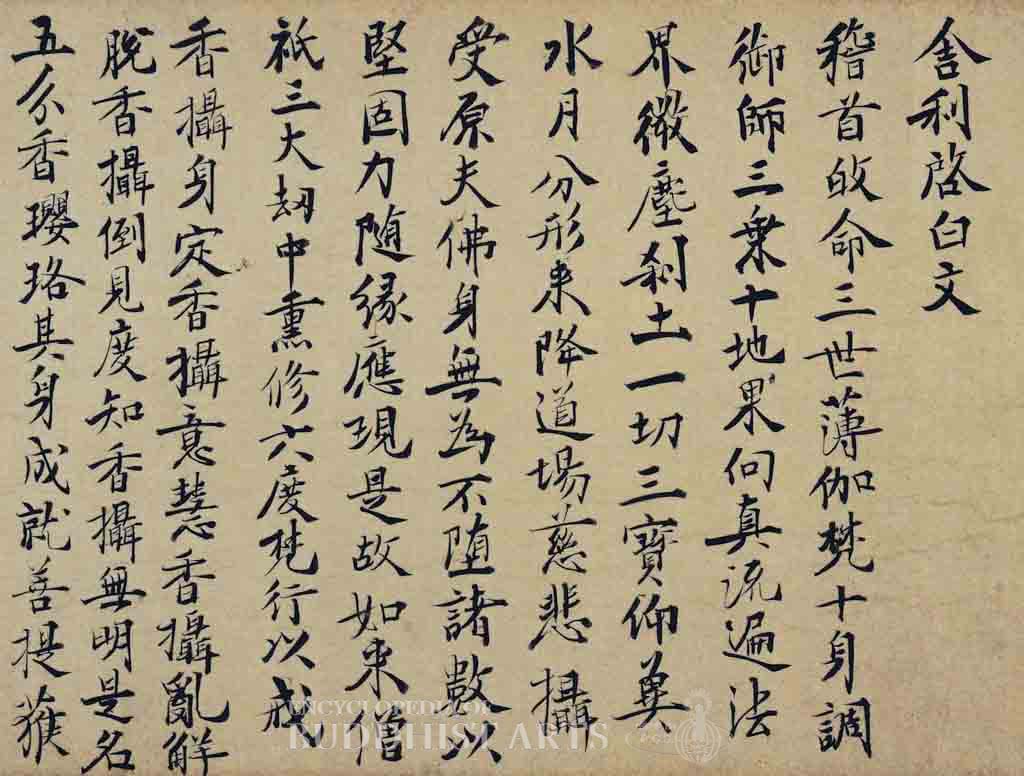 舍利啓白文
稽首皈命三世薄伽梵十身調
御師三乗十地果向真流遍法
界微塵刹土一切三寶仰奠
水月分形来降道場慈悲攝
受原夫佛身無為不墮諸數以
堅固力随緣應現是故如来僧
祇三大劫中熏修六度梵行以戒
香攝身定香攝意慧香攝亂解
脫香攝倒見度知香攝無明是名
五分香瓔珞其身成就菩提獲
ENCYCLOPEDIA OF
BUDDHIST ARTS